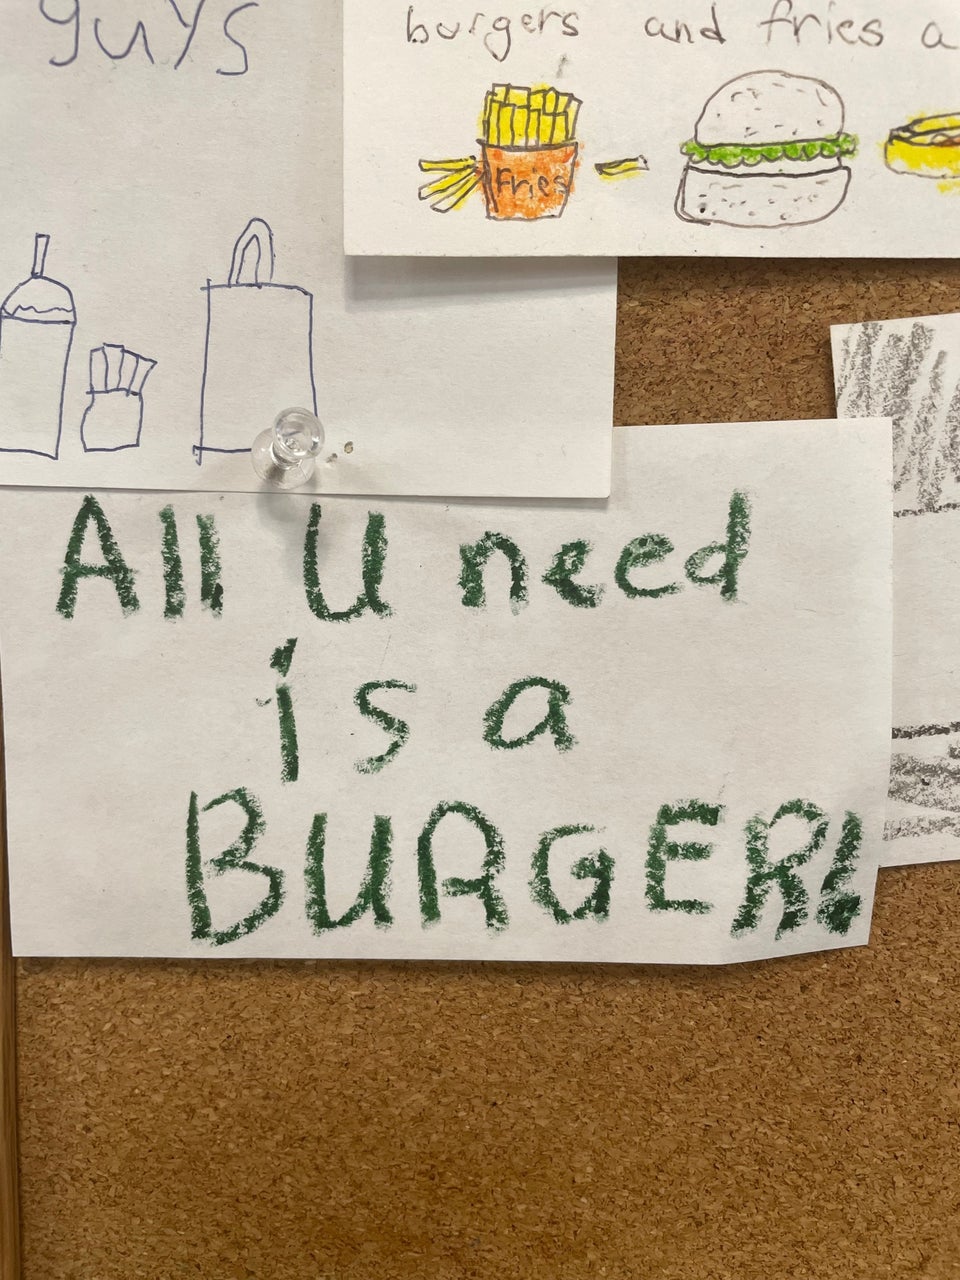 guys
burgers and fries a
Fries
All U need
is a
BURGER!